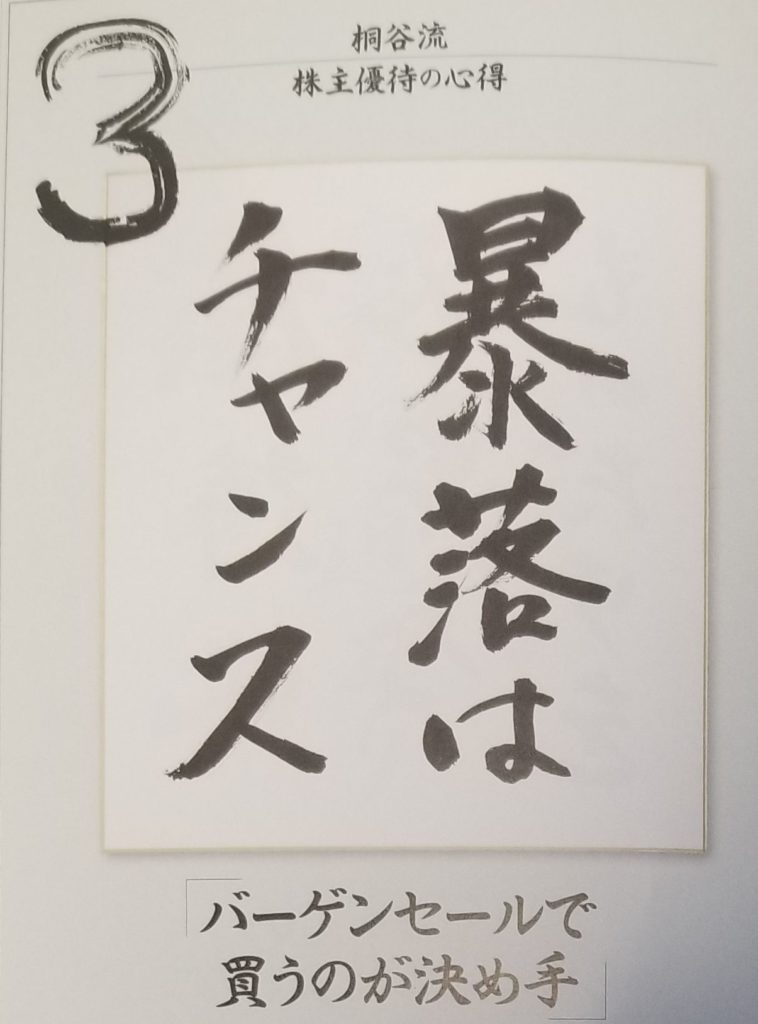 3
桐谷流
株主優待の心得
暴落は
チャンス
「バーゲンセールで
買うのが決め手」